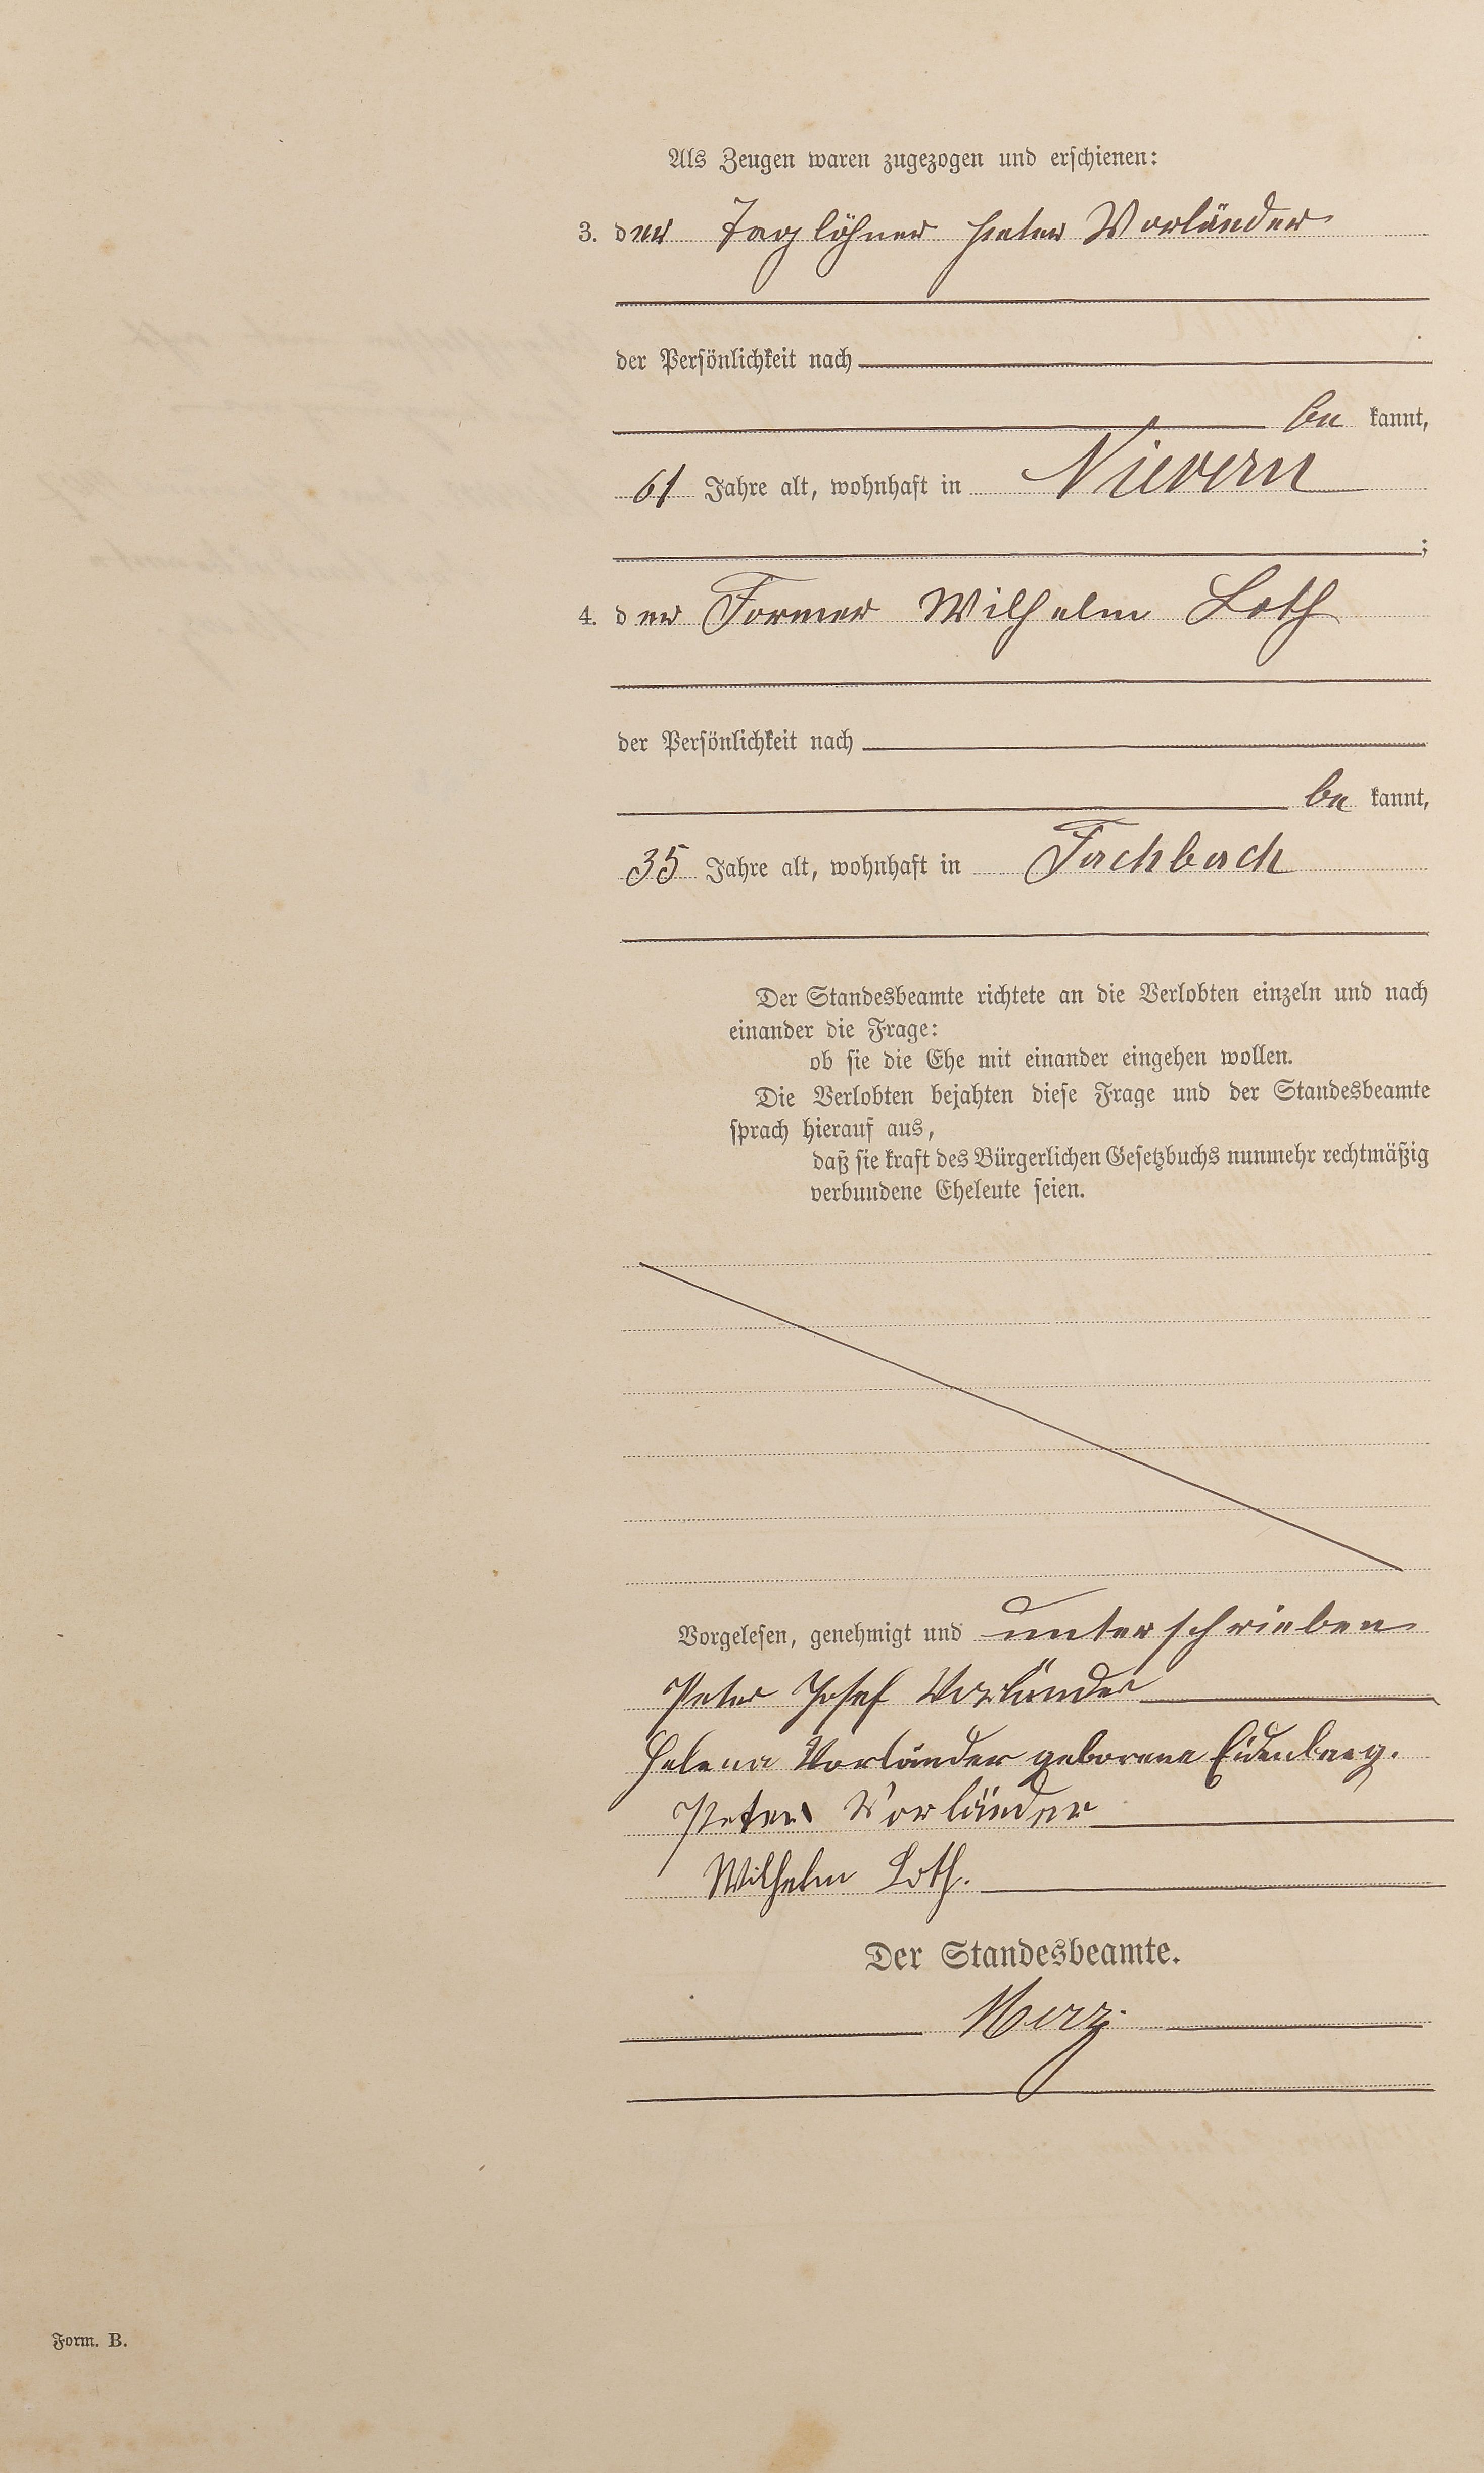 Als Zeugen waren zugezogen und erschienen:
3. der Taglöhner Peter Vorländer
der Persönlichkeit nach
be kannt,
61 Jahre alt, wohnhaft in Nievern
;
4. der Former Wilhelm Loth
der Persönlichkeit nach
be kannt,
35 Jahre alt, wohnhaft in Fachbach
Der Standesbeamte richtete an die Verlobten einzeln und nach
einander die Frage:
ob sie die Ehe mit einander eingehen wollen.
Die Verlobten bejahten diese Frage und der Standesbeamte
sprach hierauf aus,
daß sie kraft des Bürgerlichen Gesetzbuchs nunmehr rechtmäßig
verbundene Eheleute seien.
Vorgelesen, genehmigt und unterschrieben
Peter Josef Vorländer
Helena Vorländer geborene Eidenberg.
Peter Vorländer
Wilhelm Loth.
Der Standesbeamte.
Merz.
Form. B.